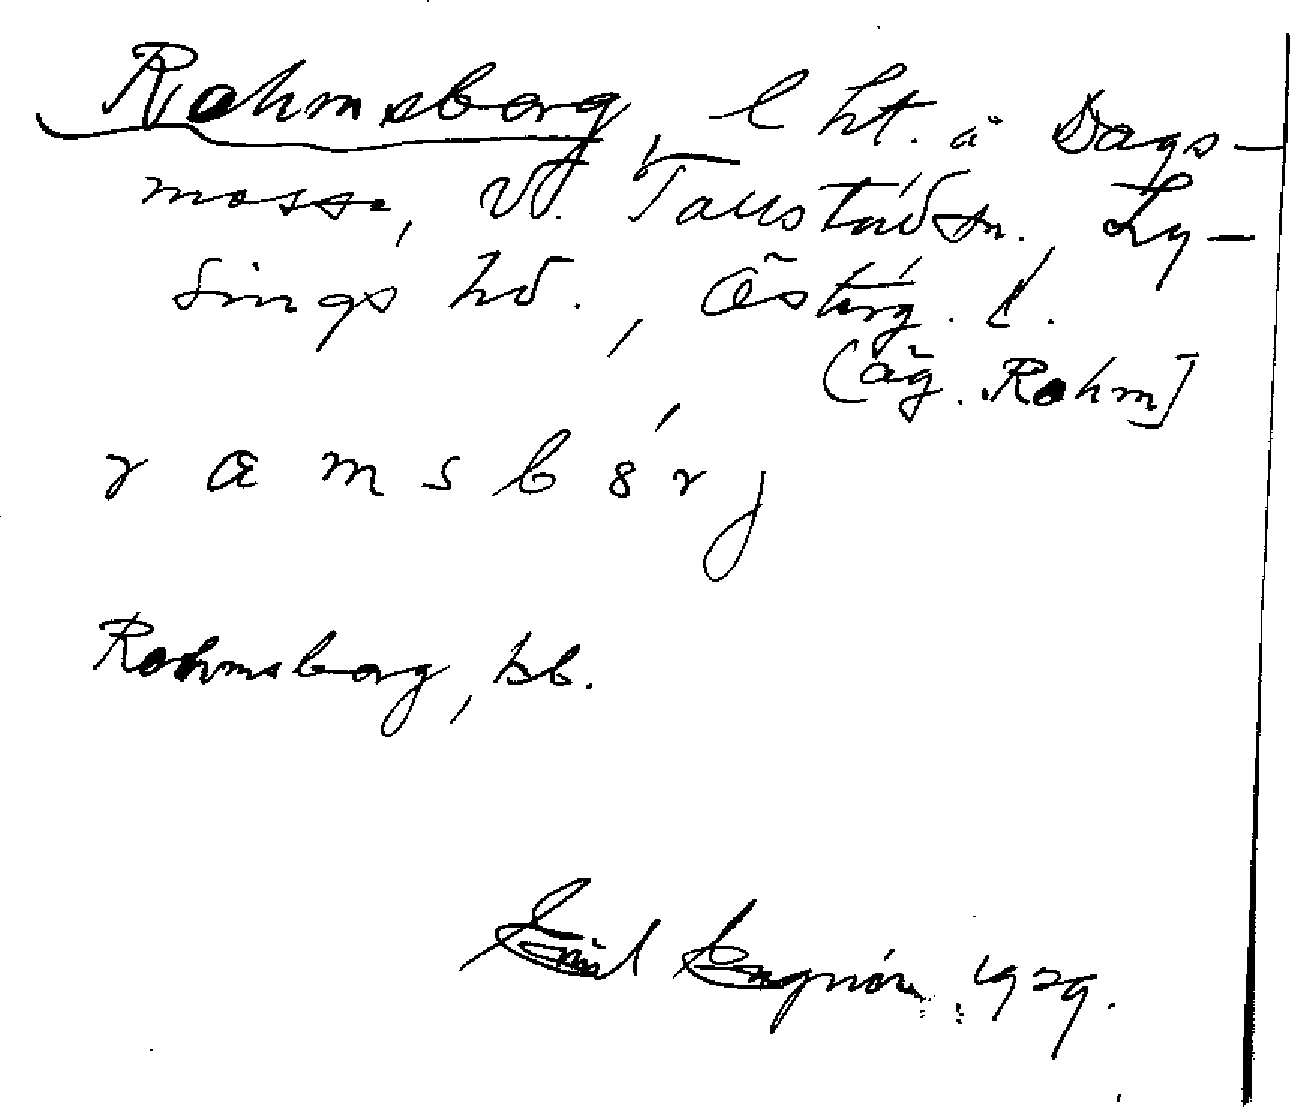 Rohmsberg, l ht. å Dags-
mosse, V. Tollstad sn., Ly-
sings hd., Östirg. l.
[äg. Rohm]
r œ m s b ɛ r j
Rohmsberg, kb.
Emil 1929.